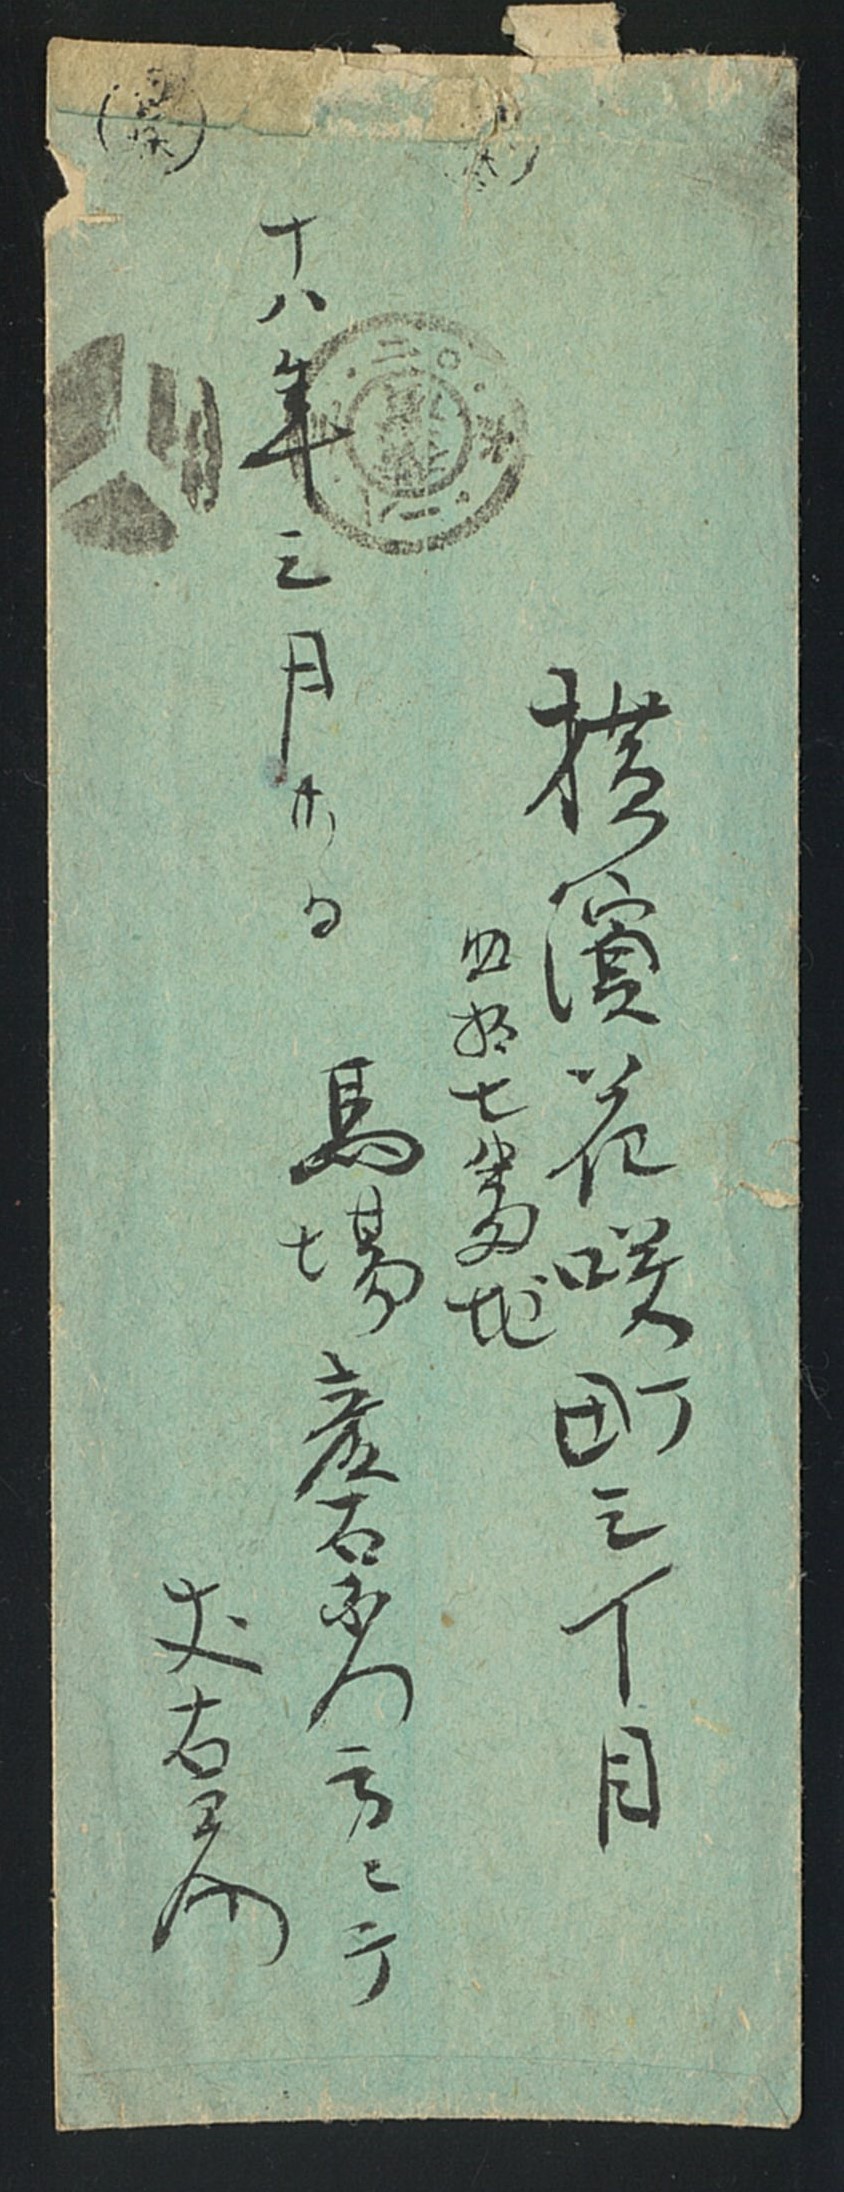 横濱花咲町三丁目
四拾七番地
馬場彦右衛門方ニテ
十八年三月六日
右衛門